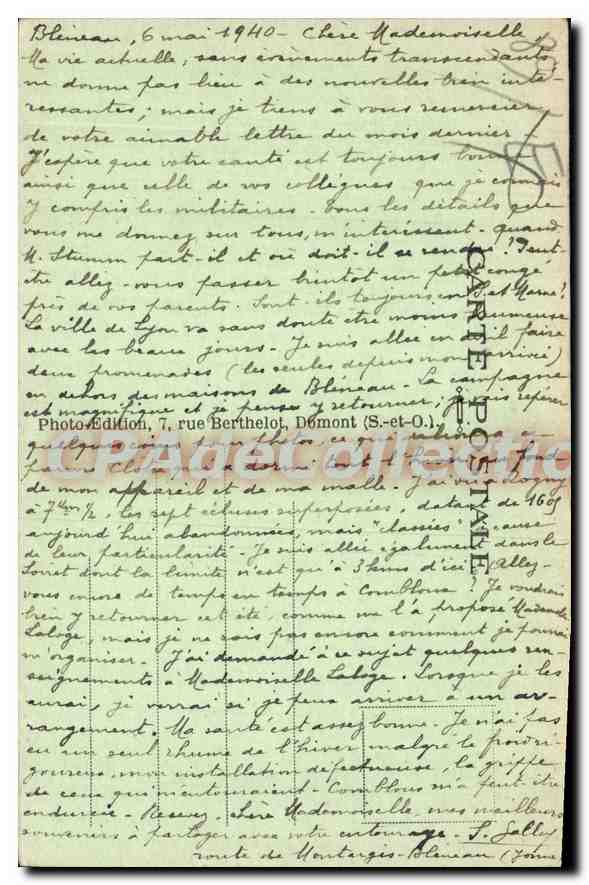 Bléneau, 6 mai 1940 - Chère Mademoiselle,
Ma vie actuelle, sans évènements transcendants
ne donne pas lieu à des nouvelles bien inté-
ressantes ; mais je tiens à vous remercier
de votre aimable lettre du mois dernier -
J'espère que votre santé est toujours bonne
ainsi que celle de vos collègues que je connais
y compris les militaires - tous les détails que
vous me donnez sur tous, m'intéressent - quand
M. Stumm part-il et où doit-il se rendre ? Peut-
être allez-vous passer bientôt un petit congé
près de vos parents. Sont-ils toujours en S. et Marne ?
La ville de Lyon va sans doute être moins brumeuse
avec les beaux jours - Je suis allée en avril faire
deux promenades (les seules depuis mon arrivée)
en dehors des maisons de Bléneau - La campagne
est magnifique et je pense y retourner ; je vais repérer
quelques coins pour photos, ce qui
dormi tout l'hiver au fond
de mon appareil et de ma malle. J'ai vu à Rogny
à 7 km ½, les sept écluses superposées, datant de 1605
aujourd'hui abandonnées, mais "classées" à cause
de leur particularité - Je suis allée également dans le
Loiret dont la limite n'est qu'à 3 kms d'ici (Allez-
vous encore de temps en temps à Combloux ? Je voudrais
bien y retourner cet été, comme me l'a proposé Madame
Laloge, mais je ne sais pas encore comment je pourrai
m'organiser. J'ai demandé à ce sujet quelques ren-
seignements à Mademoiselle Laloge. Lorsque je les
aurai, je verrai si je peux arriver à un ar-
rangement. Ma santé est assez bonne - Je n'ai pas
eu un seul rhume de l'hiver malgré le froid ri-
goureux, mon installation défectueuse, la grippe
de ceux qui m'entouraient - Combloux m'a peut-être
endurcie - Recevez, chère Mademoiselle, mes meilleurs
souvenirs à partager avec votre entourage - S. Galley
route de Montargis - Bléneau (Yonne
CARTE POSTALE
Photo-Édition, 7, rue Berthelot, Domont (S.-et-O.)
CPAdeCollection